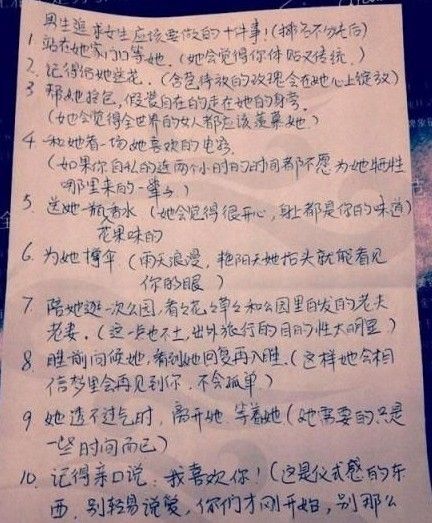 男生追求女生应该要做的十件事!(排名不分先后)
1. 站在她家门口等她.(她会觉得你体贴又传统.)
2. 记得给她送花.(含苞待放的玫瑰会在她心上绽放)
3 帮她拎包,假装自在的走在她的身旁,
(她会觉得全世界的女人都应该羡慕她.)
4 和她看一场她喜欢的电影
(如果你自私的连两个小时的时间都不愿为她牺牲
哪里来的一辈子)
5 送她一瓶香水(她会觉得很开心,身上都是你的味道)
花果味的
6. 为她撑伞.(雨天浪漫,艳阳天她抬头就能看见
你的眼)
7. 陪她逛一次公园,看看花草草和公园里白发的老夫
老妻.(这一点也不土,出外旅行的目的性太明显)
8. 睡前问候她,看到她回复再入睡.(这样她会相
信梦里会再见到你.不会孤单)
9 她透不过气时,离开她.等着她(她需要的只是
一些时间而已)
10. 记得亲口说:我喜欢你!(这是仪式感的东
西.别轻易说爱,你们才刚开始,别那么